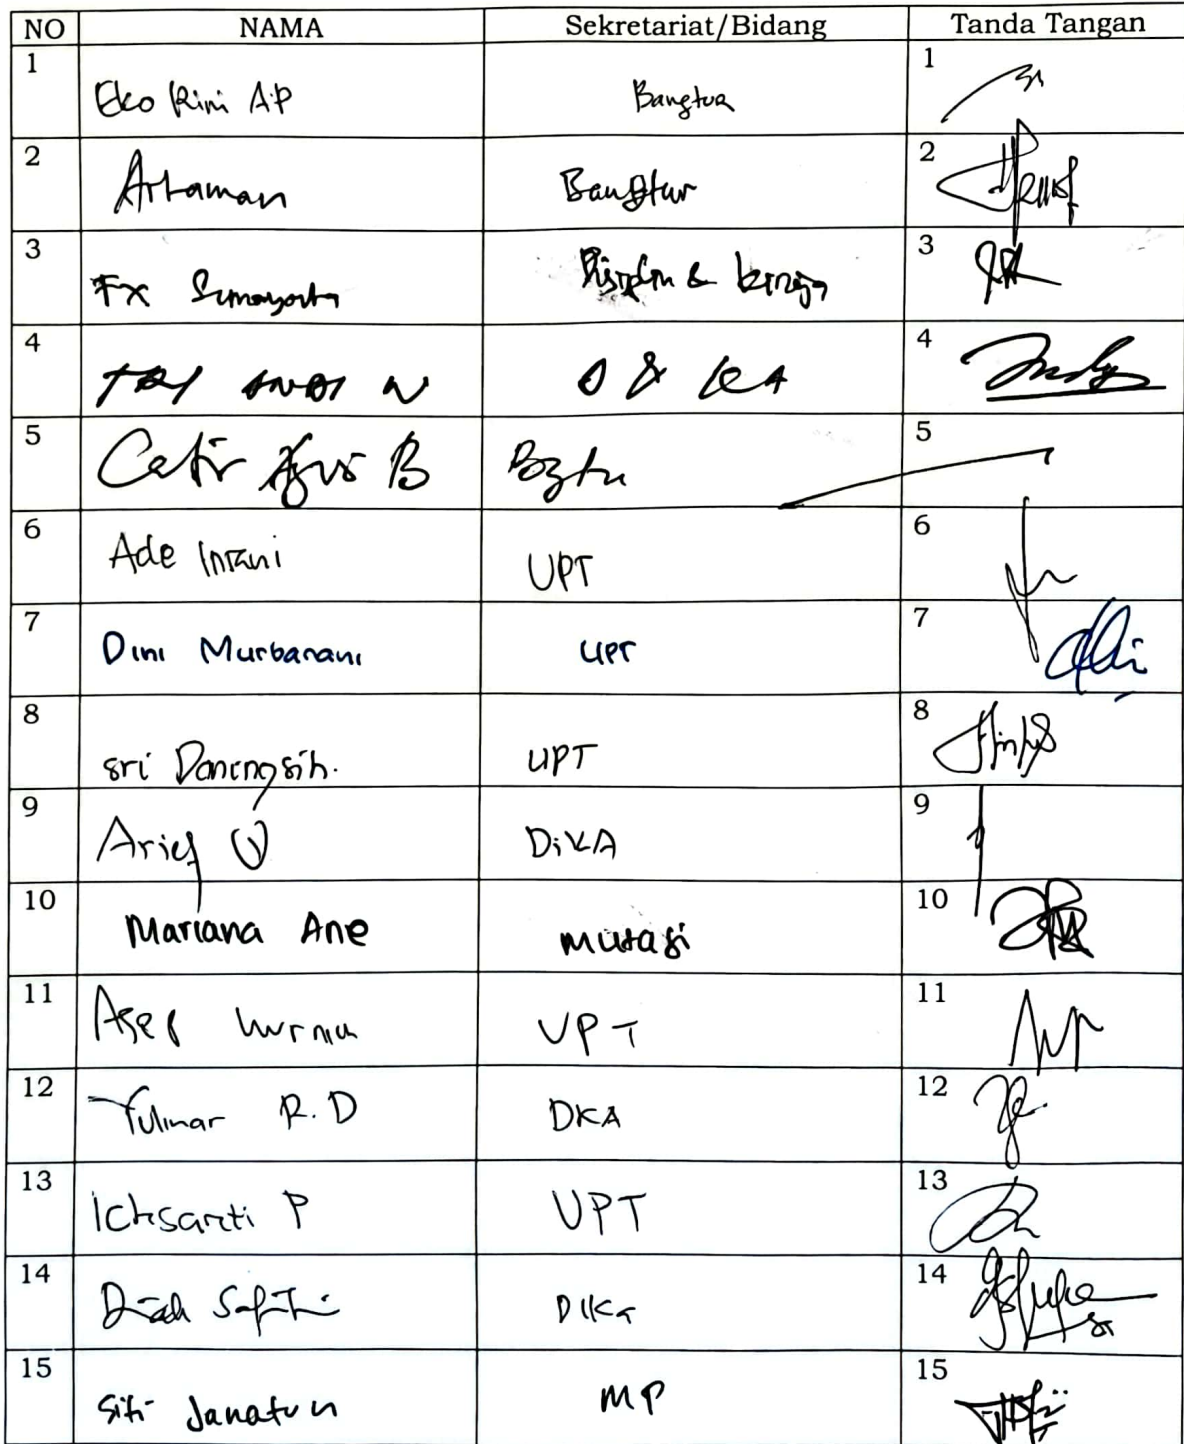 NO NAMA Sekretariat/Bidang Tanda Tangan
1 Eko Rini AP Bangtur 1
2 Artaman Bangtur 2
3 FX Sumayarta Disiplin & kinerja 3
4 TRI ANDI N D & KA 4
5 Catir Agus B Bgtu 5
6 Ade Intani UPT 6
7 Dini Murbarani UPT 7
8 Sri Daningsih. UPT 8
9 Arief W DiKA 9
10 Mariana Ane mutasi 10
11 Asep kurnia UPT 11
12 Yulinar R.D DKA 12
13 Ichsanti P UPT 13
14 Diah Safitri DIKA 14
15 Siti Janatun MP 15